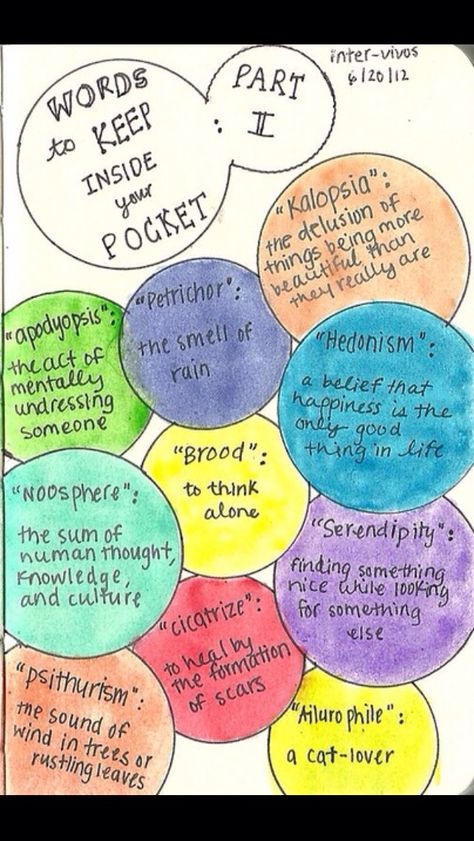 inter-vivos
6/20/12
WORDS
to KEEP
INSIDE
your
POCKET
: PART
II
"Kalopsia":
the delusion of
things being more
beautiful than
they really are
"Petrichor":
the smell of
rain
"apodyopsis":
the act of
mentally
undressing
someone
"Hedonism":
a belief that
happiness is the
only good
thing in life
"Brood":
to think
alone
"NOOSphere":
the sum of
human thought,
knowledge,
and culture
"Serendipity":
finding something
nice while looking
for something
else
"cicatrize":
to heal by
the formation
of scars
"psithurism":
the sound of
wind in trees or
rustling leaves
"Ailurophile":
a cat-lover